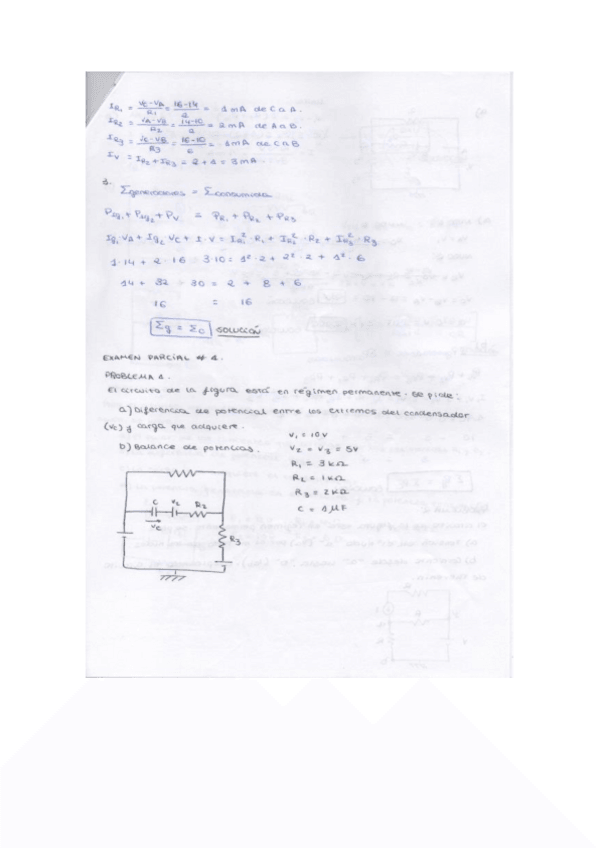 I_R1 = (VC-VA)/R1 = (16-14)/2 = 1 mA de C a A.
I_R2 = (VA-VB)/R2 = (14-10)/2 = 2 mA de A a B.
I_R3 = (VC-VB)/R3 = (16-10)/6 = 1 mA de C a B
I_V = I_R2 + I_R3 = 2 + 1 = 3 mA.
3.
Σgeneradores = Σconsumida
P_Ig1 + P_Ig2 + P_V = P_R1 + P_R2 + P_R3
Ig1·VA + Ig2·VC + I·V = I_R1²·R1 + I_R2²·R2 + I_R3²·R3
1·14 + 2·16 3·10 = 1²·2 + 2²·2 + 1²·6
14 + 32 30 = 2 + 8 + 6
16 = 16
Σg = Σc SOLUCIÓN
EXAMEN PARCIAL # 1.
PROBLEMA 1.
El circuito de la figura está en régimen permanente. Se pide:
a) Diferencia de potencial entre los extremos del condensador
(Vc) y carga que adquiere.
b) Balance de potencias.
V1 = 10V
V2 = V3 = 5V
R1 = 3KΩ
R2 = 1KΩ
R3 = 2KΩ
C = 1μF
C V2 R2
Vc
R3